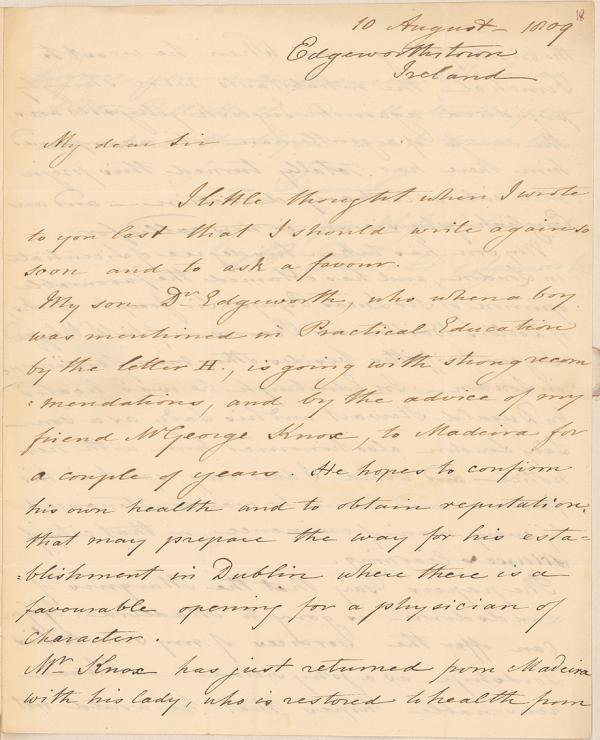 18
10 August - 1809
Edgeworthstown
Ireland
My dear Sir
I little thought when I wrote
to you last that I should write again so
soon and to ask a favour.
My son Dr Edgeworth, who when a boy
was mentioned in Practical Education
by the letter H., is going with strong recom
=mendations, and by the advice of my
friend Mr George Knox, to Madeira for
a couple of years. He hopes to confirm
his own health and to obtain reputation,
that may prepare the way for his esta=
=blishment in Dublin where there is a
favourable opening for a physician of
character.
Mr Knox has just returned from Madeira
with his lady, who is restored to health from